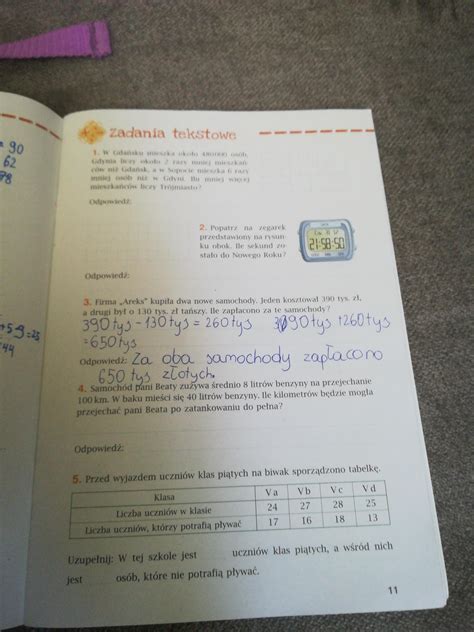 90
62
78
+5·9=25
44
zadania tekstowe
1. W Gdańsku mieszka około 480000 osób,
Gdynia liczy około 2 razy mniej mieszkań-
ców niż Gdańsk, a w Sopocie mieszka 6 razy
mniej osób niż w Gdyni. Ilu mniej więcej
mieszkańców liczy Trójmiasto?
Odpowiedź:
2. Popatrz na zegarek
przedstawiony na rysun-
ku obok. Ile sekund zo-
stało do Nowego Roku?
21:58:50
Odpowiedź:
3. Firma „Areks” kupiła dwa nowe samochody. Jeden kosztował 390 tys. zł,
a drugi był o 130 tys. zł tańszy. Ile zapłacono za te samochody?
390tys - 130tys = 260tys 390tys +260tys
=650tys
Odpowiedź: Za oba samochody zapłacono
650 tys złotych.
4. Samochód pani Beaty zużywa średnio 8 litrów benzyny na przejechanie
100 km. W baku mieści się 40 litrów benzyny. Ile kilometrów będzie mogła
przejechać pani Beata po zatankowaniu do pełna?
Odpowiedź:
5. Przed wyjazdem uczniów klas piątych na biwak sporządzono tabelkę.
Klasa V a V b V c V d
Liczba uczniów w klasie 24 27 28 25
Liczba uczniów, którzy potrafią pływać 17 16 18 13
Uzupełnij: W tej szkole jest uczniów klas piątych, a wśród nich
jest osób, które nie potrafią pływać.
11